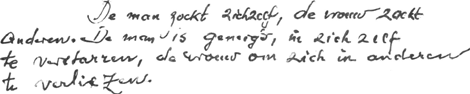 De man zoekt zichzelf, de vrouw zoekt
anderen. De man is geneigd, in zich zelf
te verstarren, de vrouw om zich in anderen
te verliezen.